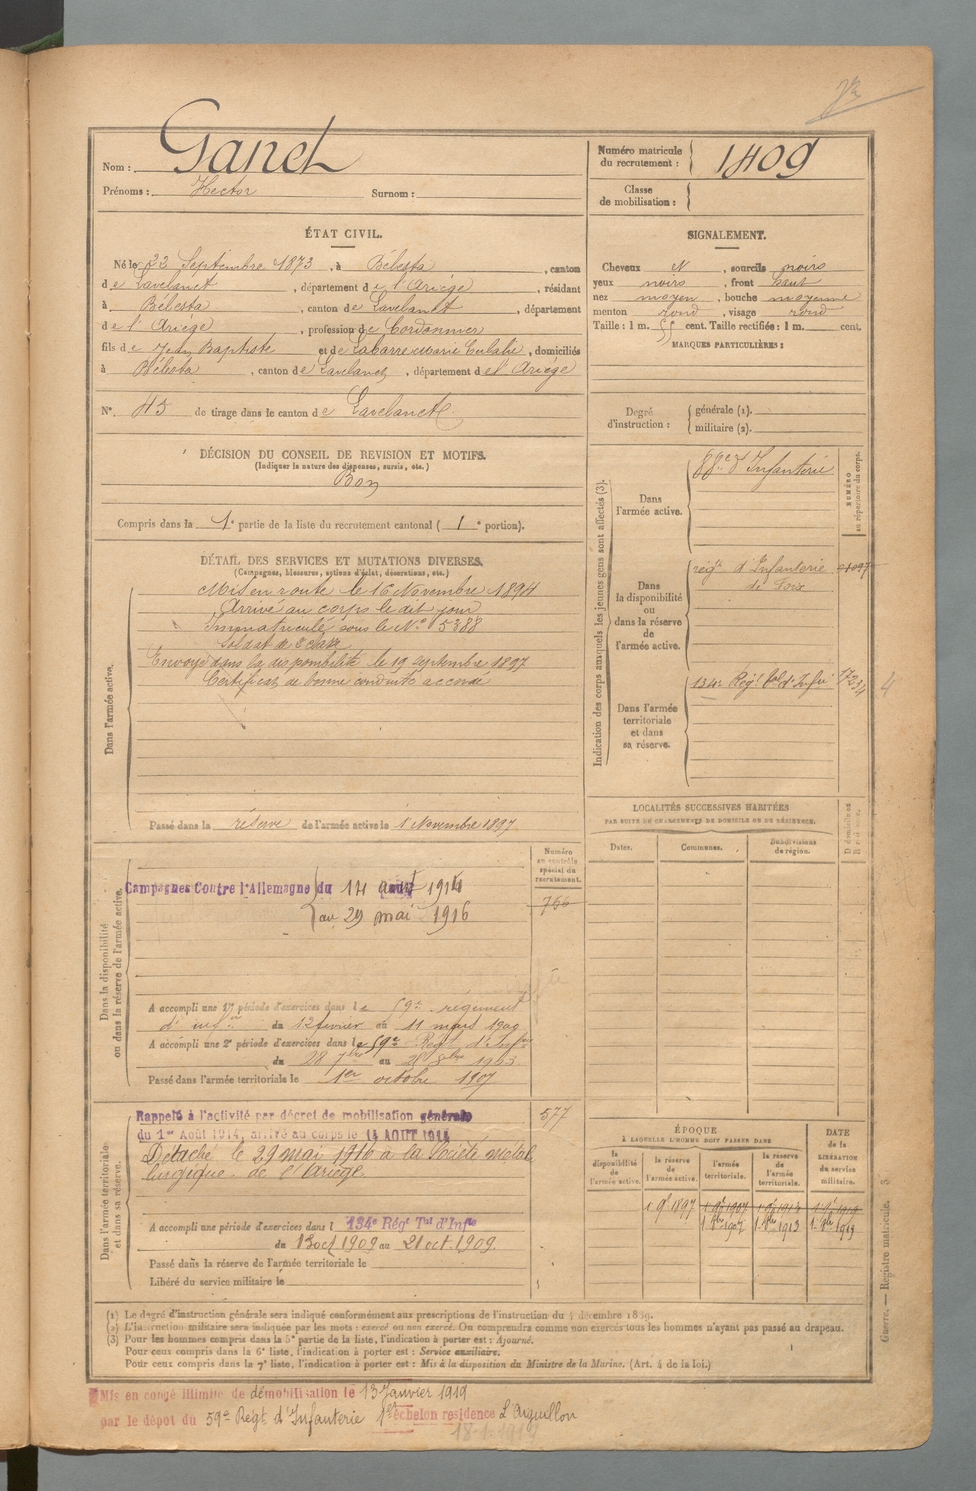 Nom : Ganet
Prénoms : Hector Surnom :
Numéro matricule du recrutement : 1409
Classe de mobilisation :
ÉTAT CIVIL.
Né le 22 Septembre 1873, à Bélesta, canton
de Lavelanet, département de l'Ariège, résidant
à Bélesta, canton de Lavelanet, département
de l'Ariège, profession de Cordonnier
fils de Jean Baptiste et de Labarre Marie Eulalie, domiciliés
à Bélesta, canton de Lavelanet, département de l'Ariège
N°. 43 de tirage dans le canton de Lavelanet
SIGNALEMENT.
Cheveux N, sourcils noirs
yeux noirs, front haut
nez moyen, bouche moyenne
menton rond, visage rond
Taille : 1 m. 55 cent. Taille rectifiée : 1 m. cent.
MARQUES PARTICULIÈRES :
Degré d'instruction : générale (1).
militaire (2).
DÉCISION DU CONSEIL DE REVISION ET MOTIFS.
(Indiquer la nature des dispenses, sursis, etc.)
Bon
Compris dans la 1e partie de la liste du recrutement cantonal (1e portion).
DÉTAIL DES SERVICES ET MUTATIONS DIVERSES.
(Campagnes, blessures, actions d'éclat, décorations, etc.)
Dans l'armée active.
Mis en route le 16 Novembre 1894
Arrivé au corps le dit jour
Immatriculé sous le N° 5388
Soldat de 2e classe
Envoyé dans la disponibilité le 19 septembre 1897
Certificat de bonne conduite accordé
Passé dans la réserve de l'armée active le 1 Novembre 1897
Indication des corps auxquels les jeunes gens sont affectés (3).
NUMÉRO au répertoire du corps.
Dans l'armée active.
88e d'Infanterie
Dans la disponibilité ou dans la réserve de l'armée active.
régt d'Infanterie
de Foix
Dans l'armée territoriale et dans sa réserve.
134e Régt Tal d'Infie
4
LOCALITÉS SUCCESSIVES HABITÉES
PAR SUITE DE CHANGEMENTS DE DOMICILE OU DE RÉSIDENCE.
Dates. Communes. Subdivisions de région. D domicile ou R résidence.
Dans la disponibilité ou dans la réserve de l'armée active.
Numéro au contrôle spécial du recrutement.
766
Campagnes Contre l'Allemagne du 14 août 1914
au 29 mai 1916
A accompli une 1re période d'exercices dans le 59e régiment
d'infie du 12 février au 11 mars 1900
A accompli une 2e période d'exercices dans le 59e Régt d'Infie
du 28 7bre au 25 8bre 1903
Passé dans l'armée territoriale le 1er octobre 1907
Dans l'armée territoriale et dans sa réserve.
577
Rappelé à l'activité par décret de mobilisation générale
du 1er Août 1914, arrivé au corps le 14 AOUT 1914
Détaché le 29 mai 1916 à la Société métal
lurgique de l'Ariège
A accompli une période d'exercices dans l 134e Régt Tal d'Infie
du 13 oct 1909 au 21 oct. 1909.
Passé dans la réserve de l'armée territoriale le
Libéré du service militaire le
ÉPOQUE
à LAQUELLE L'HOMME DOIT PASSER DANS
la disponibilité de l'armée active. la réserve de l'armée active. l'armée territoriale. la réserve de l'armée territoriale.
DATE de la LIBÉRATION du service militaire.
1 9bre 1897 1 9bre 1907
1 8bre 1907 1 8bre 1913 1 8bre 1919
(1) Le degré d'instruction générale sera indiqué conformément aux prescriptions de l'instruction du 4 décembre 1889.
(2) L'instruction militaire sera indiquée par les mots : exercé ou non exercé. On comprendra comme non exercés tous les hommes n'ayant pas passé au drapeau.
(3) Pour les hommes compris dans la 5e partie de la liste, l'indication à porter est : Ajourné.
Pour ceux compris dans la 6e liste, l'indication à porter est : Service auxiliaire.
Pour ceux compris dans la 7e liste, l'indication à porter est : Mis à la disposition du Ministre de la Marine. (Art. 4 de la loi.)
Guerre. — Registre matricule. 3.
Mis en congé illimité de démobilisation le 13 Janvier 1919
par le dépot du 59e Régt d'Infanterie 1er échelon residence L'Aiguillon